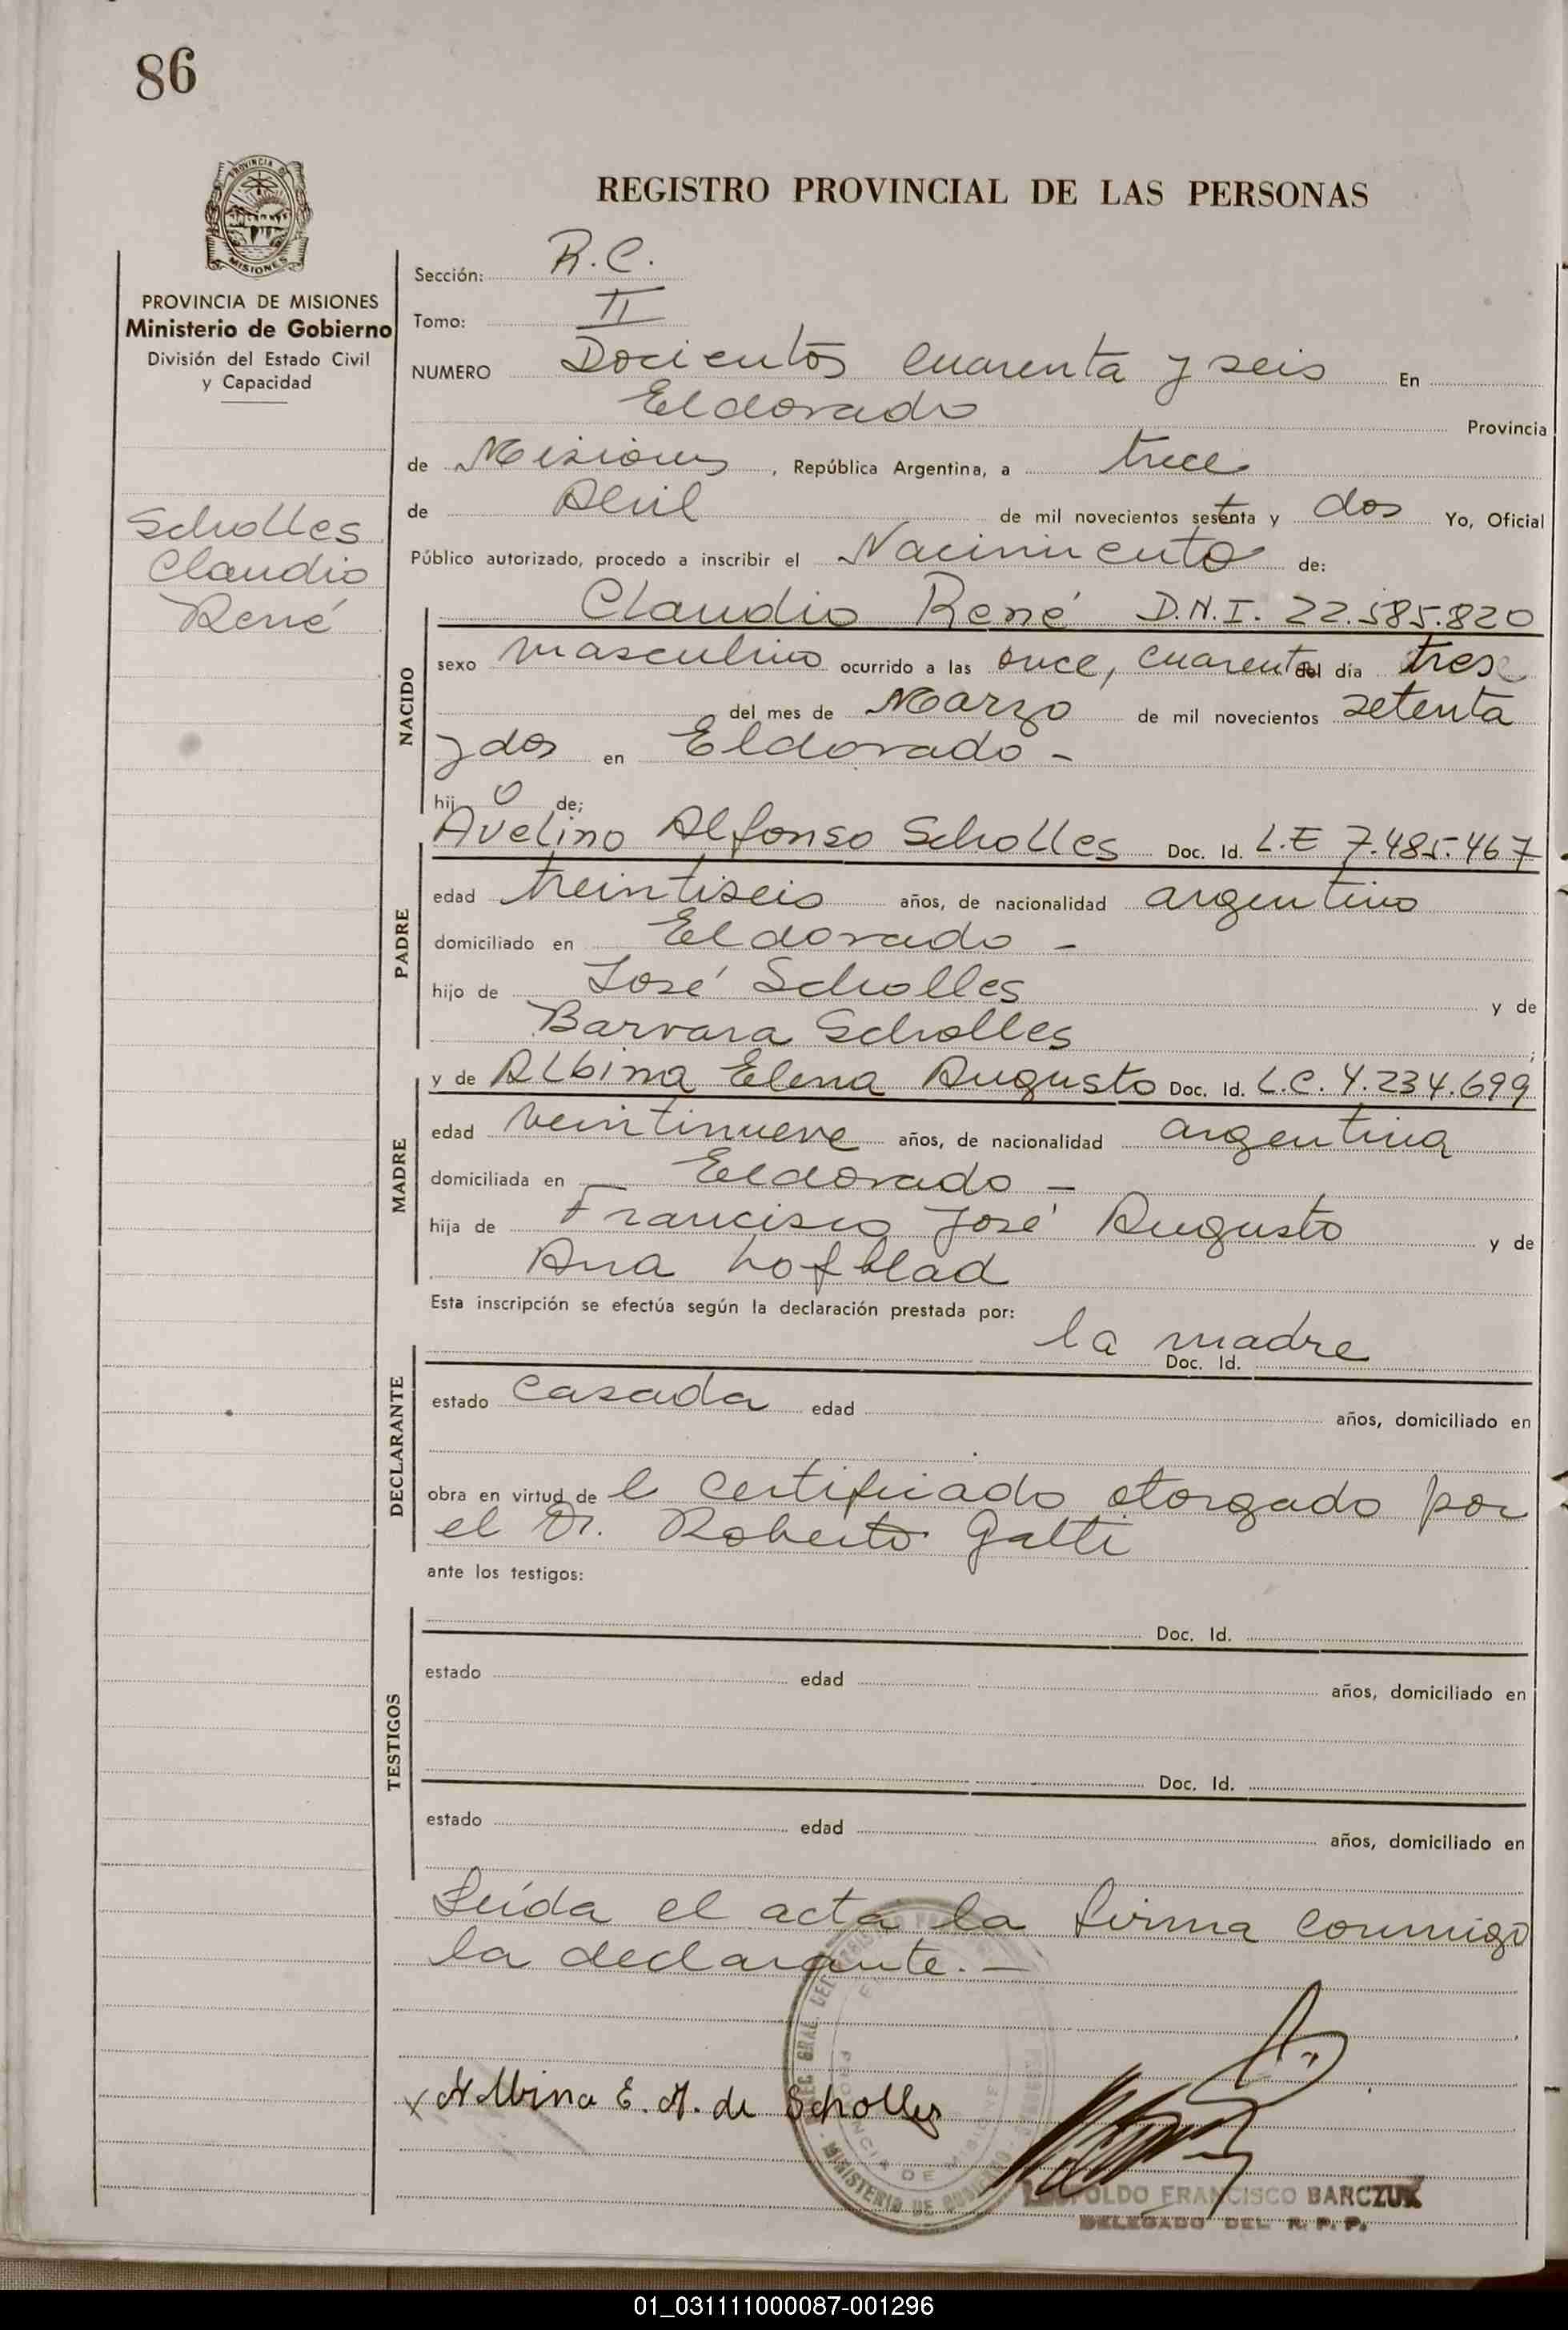 86
PROVINCIA DE
MISIONES
REGISTRO PROVINCIAL DE LAS PERSONAS
PROVINCIA DE MISIONES
Ministerio de Gobierno
División del Estado Civil
y Capacidad
Scholles
Claudio
René
Sección: R.C.
Tomo: II
NUMERO Docientos cuarenta y seis En
Eldorado Provincia
de Misiones, República Argentina, a trece
de Abril de mil novecientos setenta y dos Yo, Oficial
Público autorizado, procedo a inscribir el Nacimiento de:
NACIDO
Claudio René D.N.I. 22.585.820
sexo masculino ocurrido a las once, cuarenta del día tres
del mes de Marzo de mil novecientos setenta
y dos en Eldorado -
hij o de;
PADRE
Avelino Alfonso Scholles Doc. Id. L.E 7.485.467
edad treintiseis años, de nacionalidad argentino
domiciliado en Eldorado -
hijo de José Scholles y de
Barvara Scholles ;
MADRE
y de Albina Elena Augusto Doc. Id. L.C. 4.234.699
edad veintinueve años, de nacionalidad argentina
domiciliada en Eldorado -
hija de Francisco José Augusto y de
Ana hofblad
Esta inscripción se efectúa según la declaración prestada por:
DECLARANTE
la madre Doc. Id.
estado casada edad años, domiciliado en
obra en virtud de l certificado otorgado por
el Dr. Roberto Galti
ante los testigos:
TESTIGOS
Doc. Id.
estado edad años, domiciliado en
Doc. Id.
estado edad años, domiciliado en
Leída el acta la firma conmigo
la declarante. -
x Albina E. A. de Scholles
MINISTERIO DE GOBIERNO
DE MISIONES
LEOPOLDO FRANCISCO BARCZUK
DELEGADO DEL R. P. P.
01_031111000087-001296